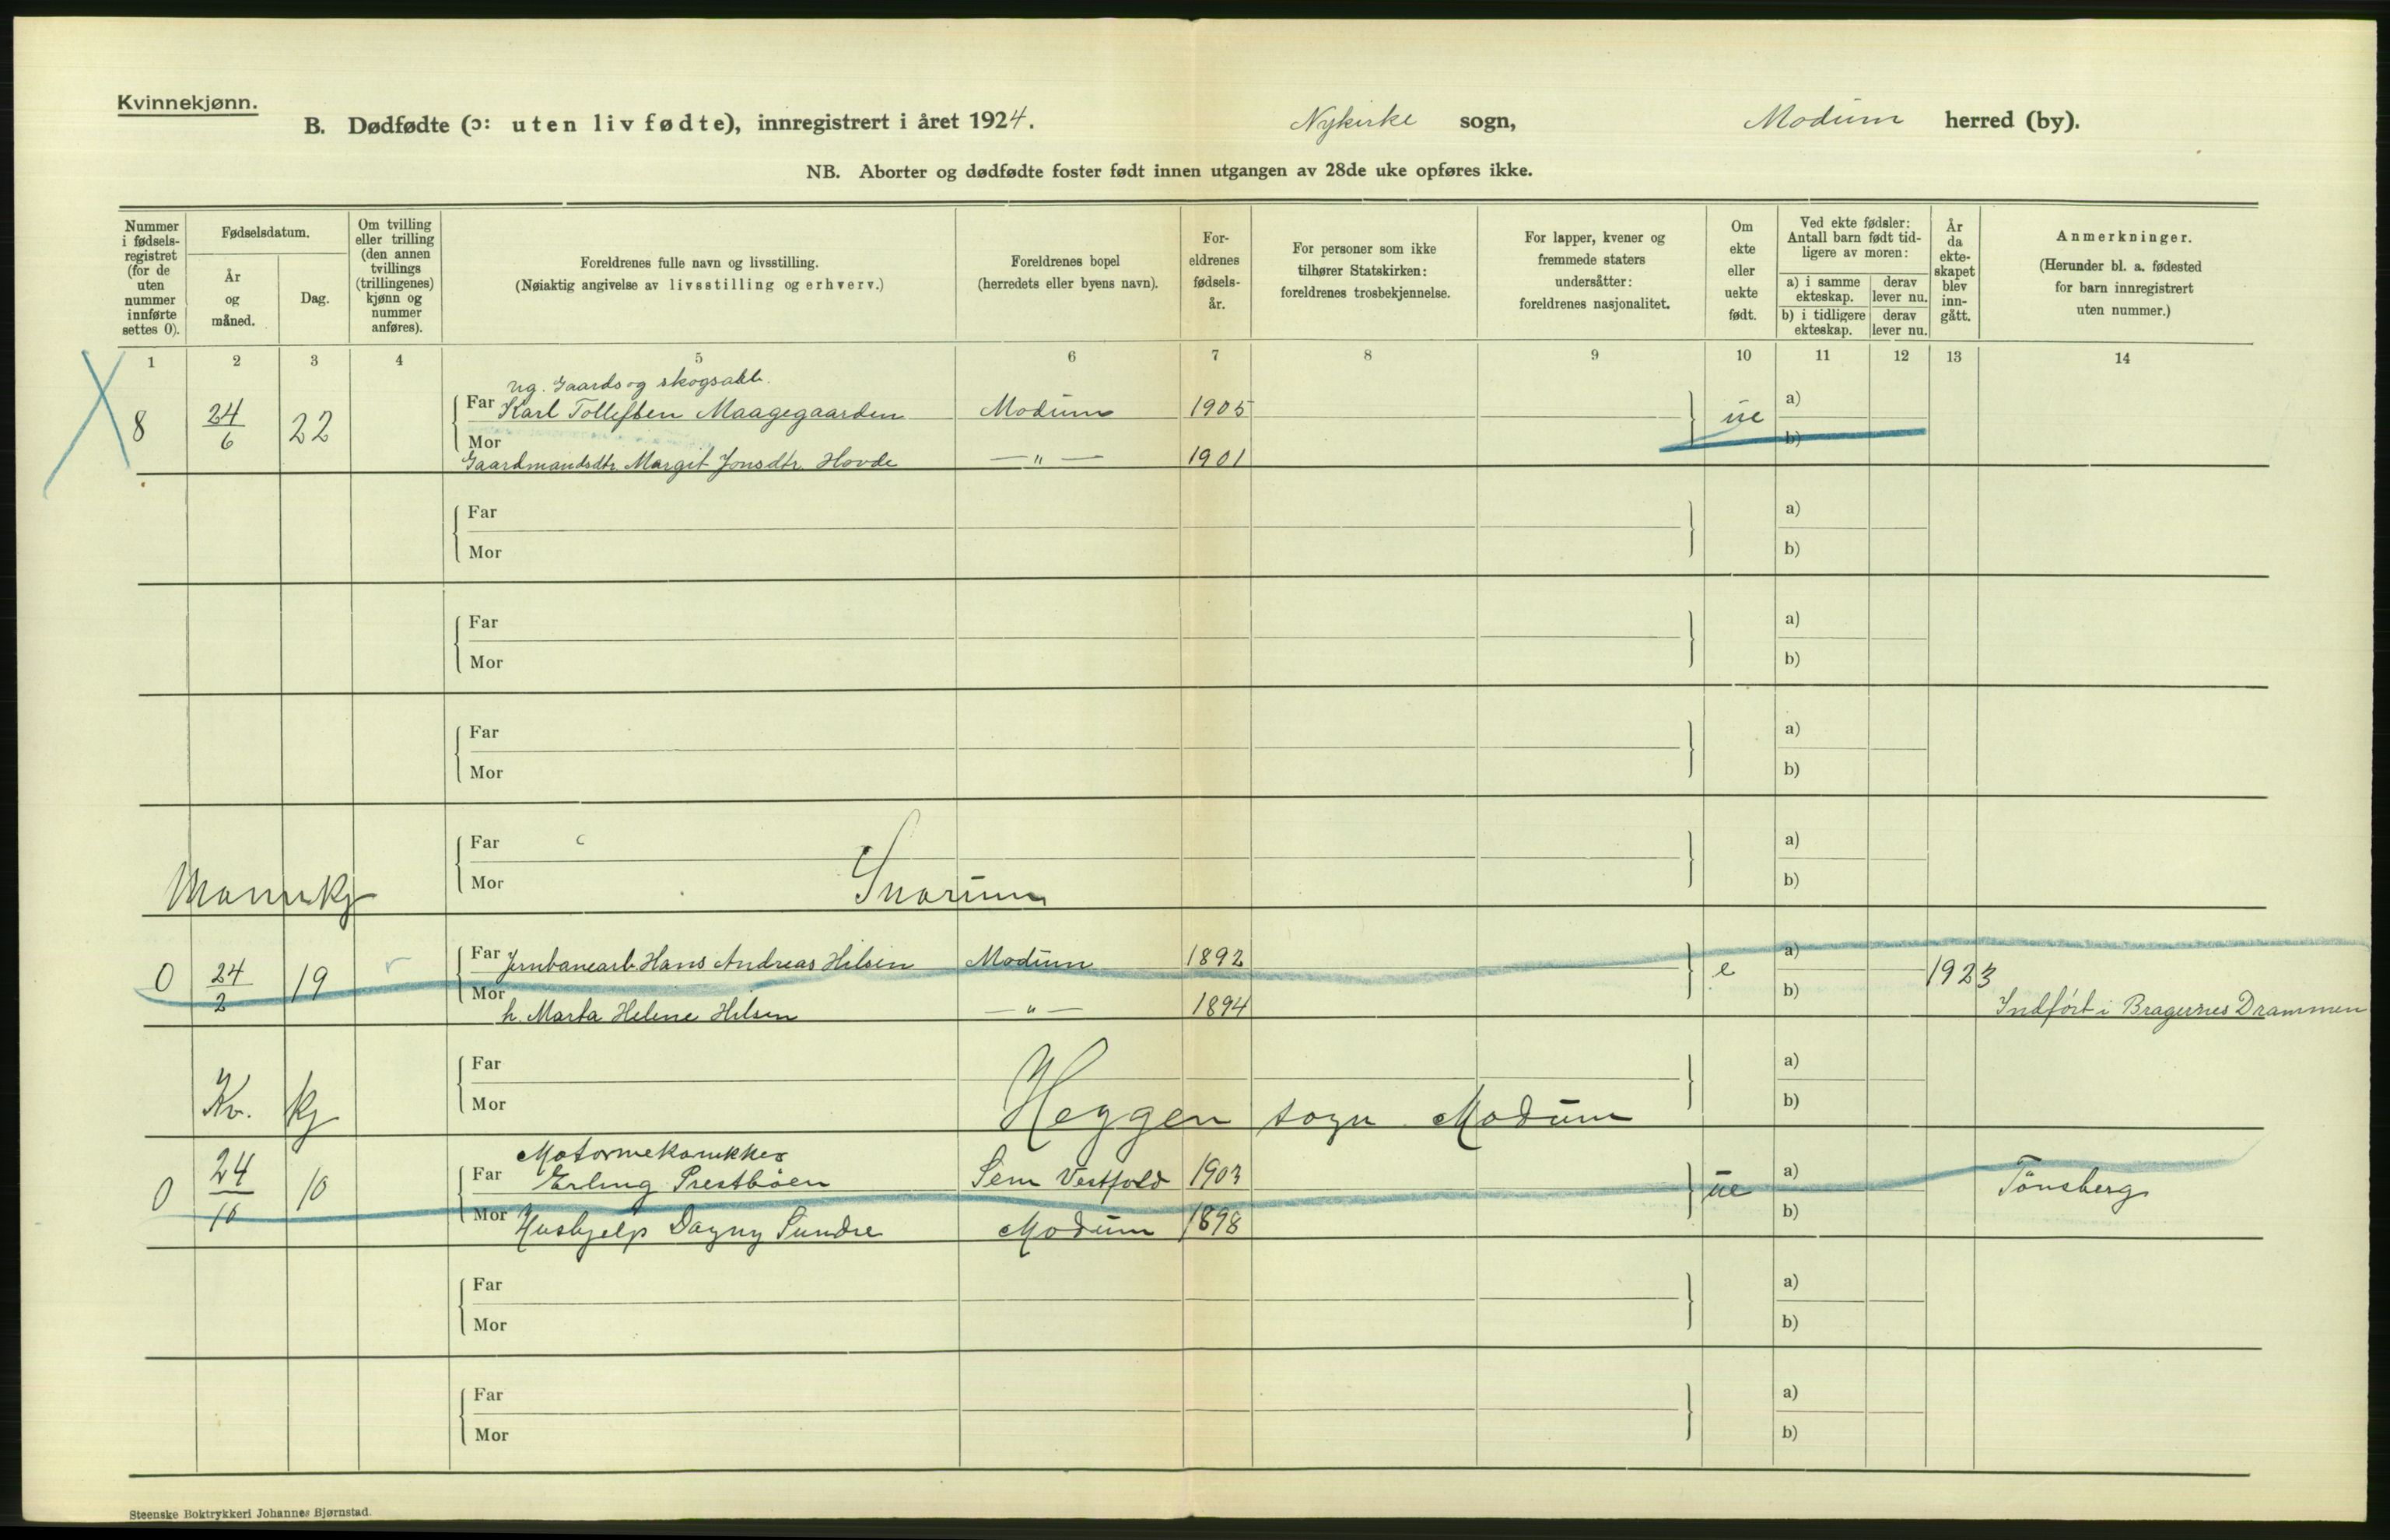 Kvinnekjønn.
B. Dødfødte (ɔ: uten liv fødte), innregistrert i året 1924. Nykirke sogn, Modum herred (by).
NB. Aborter og dødfødte foster født innen utgangen av 28de uke opføres ikke.
Nummer i fødsels-registret (for de uten nummer innførte settes 0).
Fødselsdatum.
År og måned.
Dag.
Om tvilling eller trilling (den annen tvillings (trillingenes) kjønn og nummer anføres).
Foreldrenes fulle navn og livsstilling.
(Nøiaktig angivelse av livsstilling og erhverv.)
Foreldrenes bopel
(herredets eller byens navn).
For-eldrenes fødsels-år.
For personer som ikke tilhører Statskirken: foreldrenes trosbekjennelse.
For lapper, kvener og fremmede staters undersåtter: foreldrenes nasjonalitet.
Om ekte eller uekte født.
Ved ekte fødsler: Antall barn født tid-ligere av moren:
a) i samme ekteskap. derav lever nu.
b) i tidligere ekteskap. derav lever nu.
År da ekte-skapet blev inn-gått.
Anmerkninger.
(Herunder bl. a. fødested for barn innregistrert uten nummer.)
1 2 3 4 5 6 7 8 9 10 11 12 13 14
Ug. Gaards og skogsarb.
8 24/6 22 Far Karl Tollefsen Maagegaarden Modum 1905 ue a)
Mor b)
Gaardmandsdtr. Margit Jonsdtr. Hovde — " — 1901
Far a)
Mor b)
Far a)
Mor b)
Far a)
Mor b)
Far a)
Mor b)
Mannkj Snarum
0 24/2 19 Far Jernbanearb. Hans Andreas Hilsen Modum 1892 e a) 1923
Mor b)
h. Marta Helene Hilsen — " — 1894 Indført i Bragernes Drammen
Far a)
Mor b)
Kv. kj Heggen sogn Modum
Motormekanikker
0 24/10 10 Far Erling Prestbøen Sem Vestfold 1903 ue a) Tönsberg
Mor Hushjelp Dagny Sundre Modum 1898 b)
Far a)
Mor b)
Far a)
Mor b)
Steenske Boktrykkeri Johannes Bjørnstad.